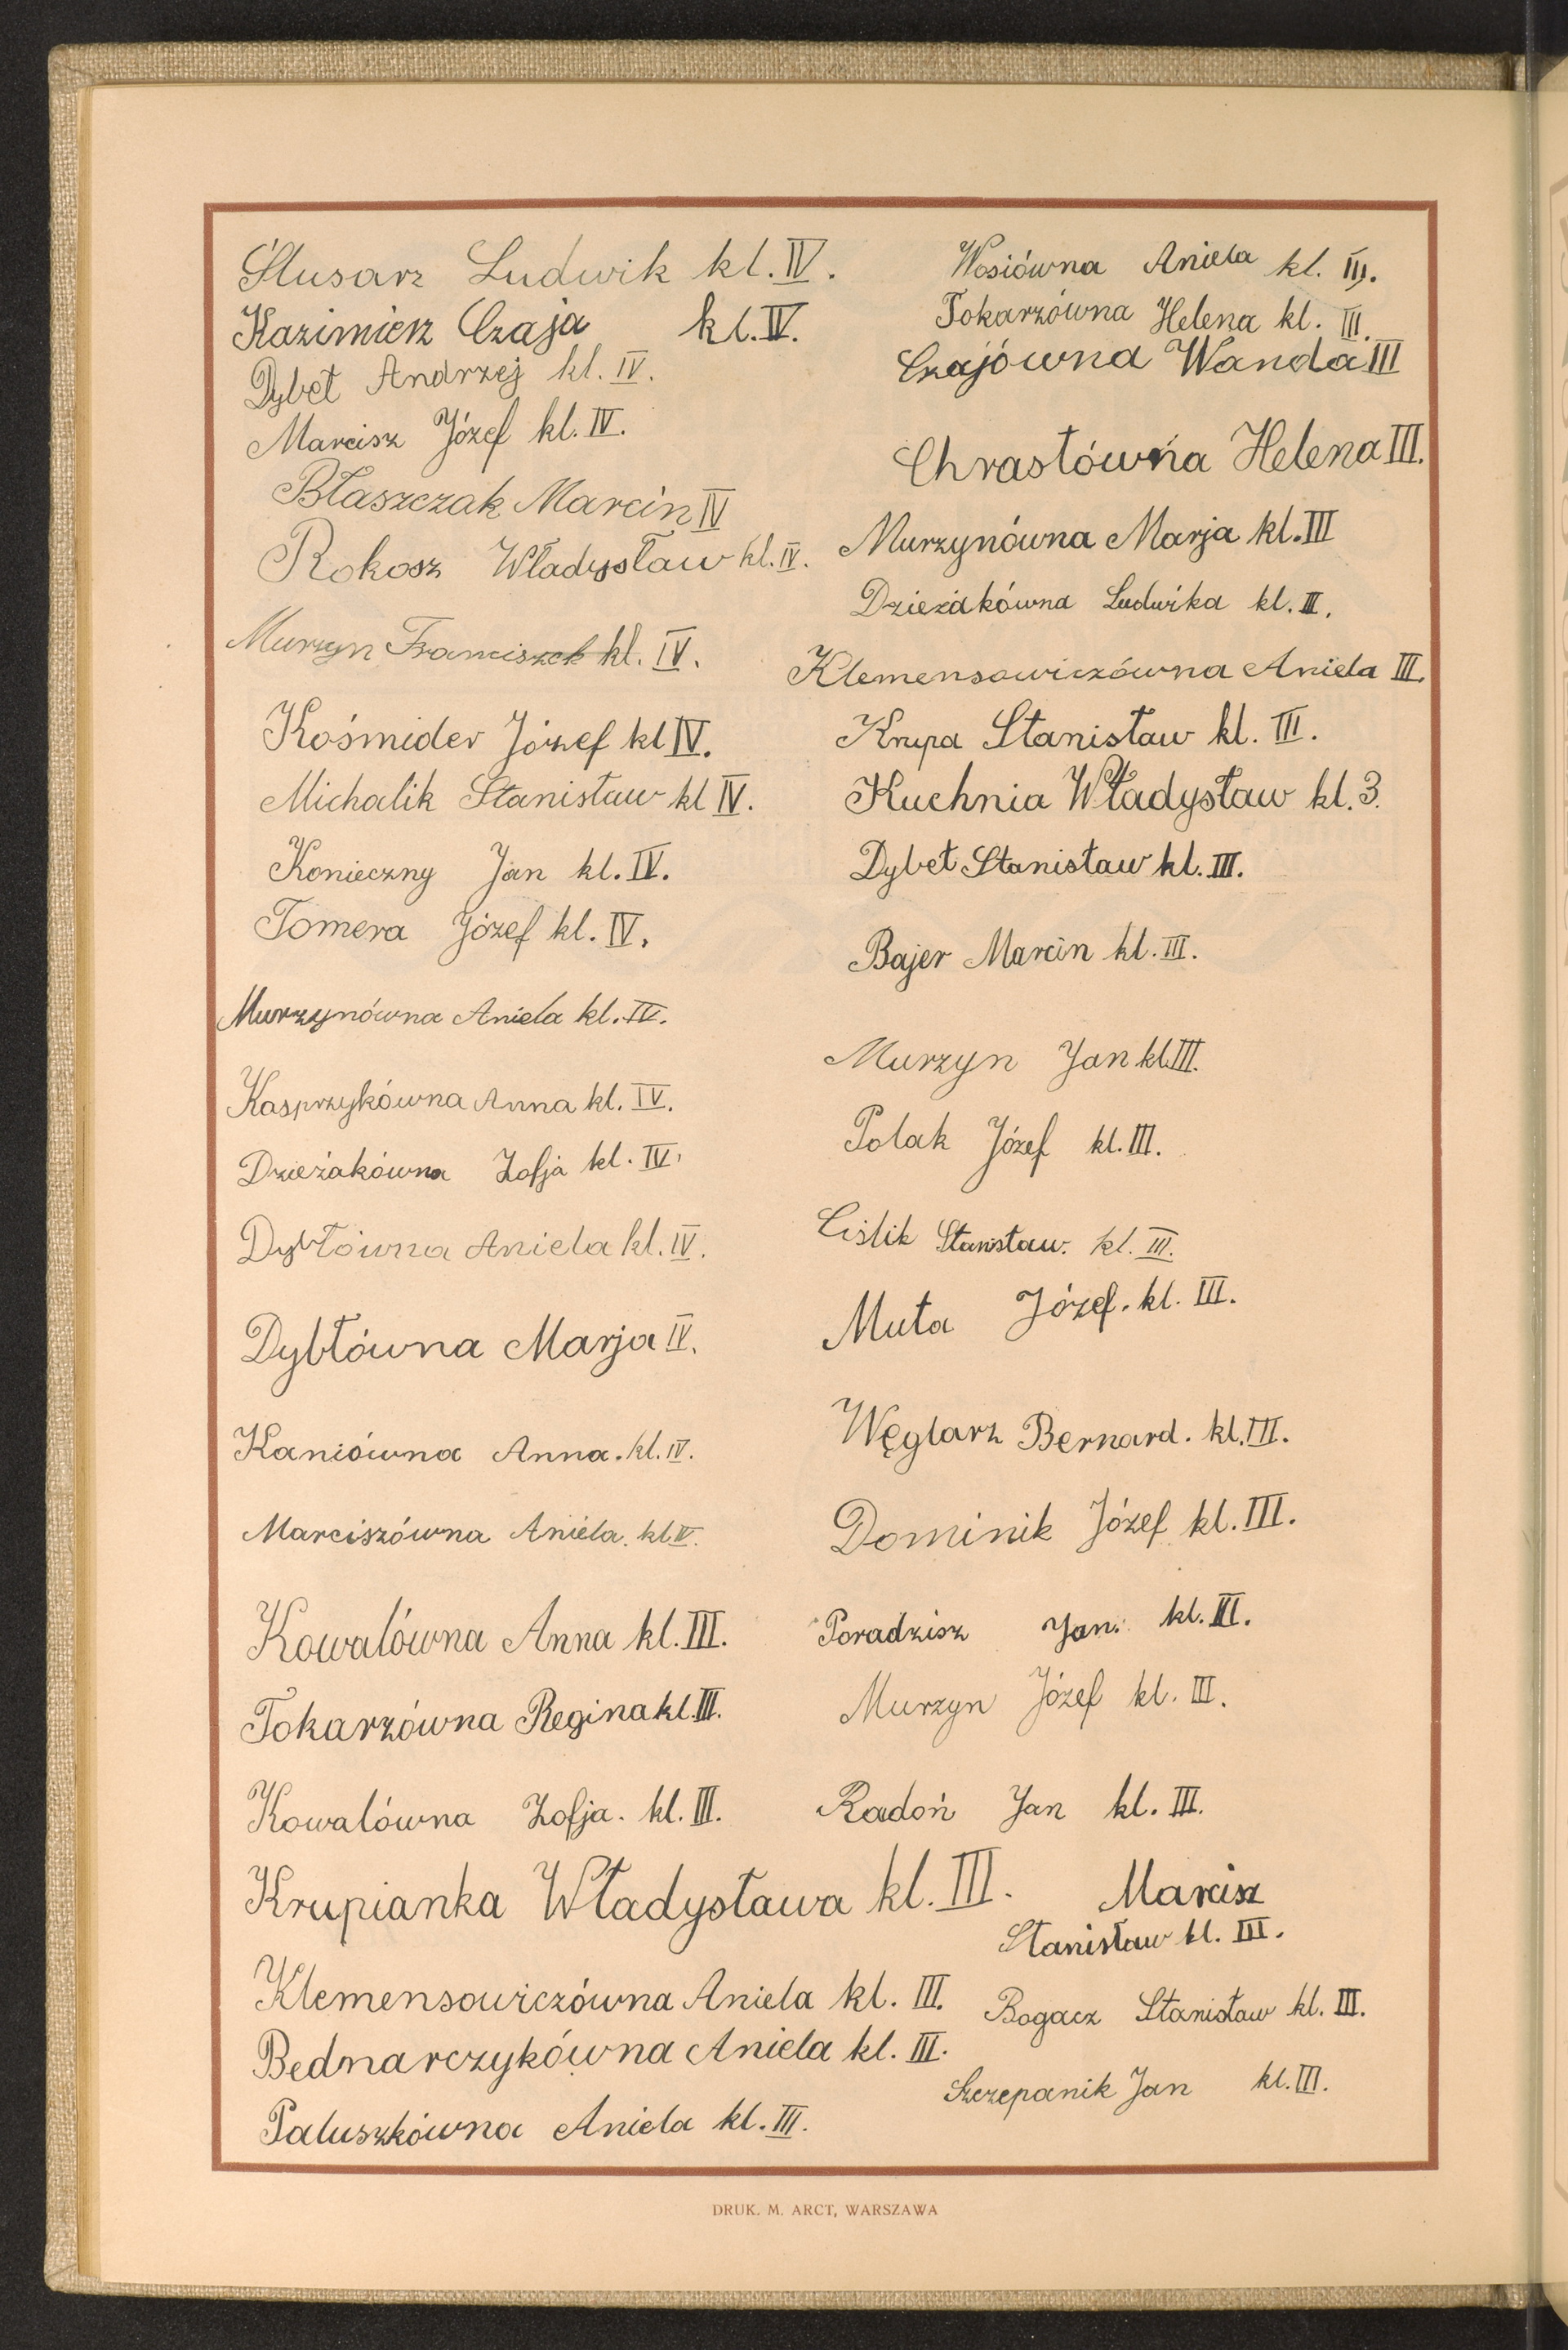 Ślusarz Ludwik kl. IV.
Kazimierz Czaja kl. IV.
Dybeł Andrzej kl. IV.
Marcisz Józef kl. IV.
Błaszczak Marcin IV
Rokosz Władysław kl. IV.
Murzyn Franciszek kl. IV.
Kośmider Józef kl IV.
Michalik Stanisław kl IV.
Konieczny Jan kl. IV.
Tomera Józef kl. IV.
Murzynówna Aniela kl. IV.
Kasprzykówna Anna kl. IV.
Dzieżakówna Zofja kl. IV.
Dybłówna Aniela kl. IV.
Dybłówna Marja IV.
Kaniówna Anna. kl. IV.
Marciszówna Aniela. kl IV.
Kowalówna Anna kl. III.
Tokarzówna Regina kl. III.
Kowalówna Zofja. kl. III.
Krupianka Władysława kl. III.
Klemensowiczówna Aniela kl. III.
Bednarczykówna Aniela kl. III.
Paluszkówna Aniela kl. III.
Wosiówna Aniela kl. III.
Tokarzówna Helena kl. III.
Czajówna Wanda III
Chrastówńa Helena III.
Murzynówna Marja kl. III
Dzieżakówna Ludwika kl. III.
Klemensowiczówna Aniela III.
Krupa Stanisław kl. III.
Kuchnia Władysław kl. 3.
Dybeł Stanisław kl. III.
Bajer Marcin kl. III.
Murzyn Jan kl. III.
Polak Józef kl. III.
Ciślik Stanisław. kl. III.
Muta Józef. kl. III.
Węglarz Bernard. kl. III.
Dominik Józef kl. III.
Poradzisz Jan. kl. III.
Murzyn Józef kl. III.
Radoń Jan kl. III.
Marcisz
Stanisław kl. III.
Bogacz Stanisław kl. III.
Szczepanik Jan kl. III.
DRUK. M. ARCT, WARSZAWA